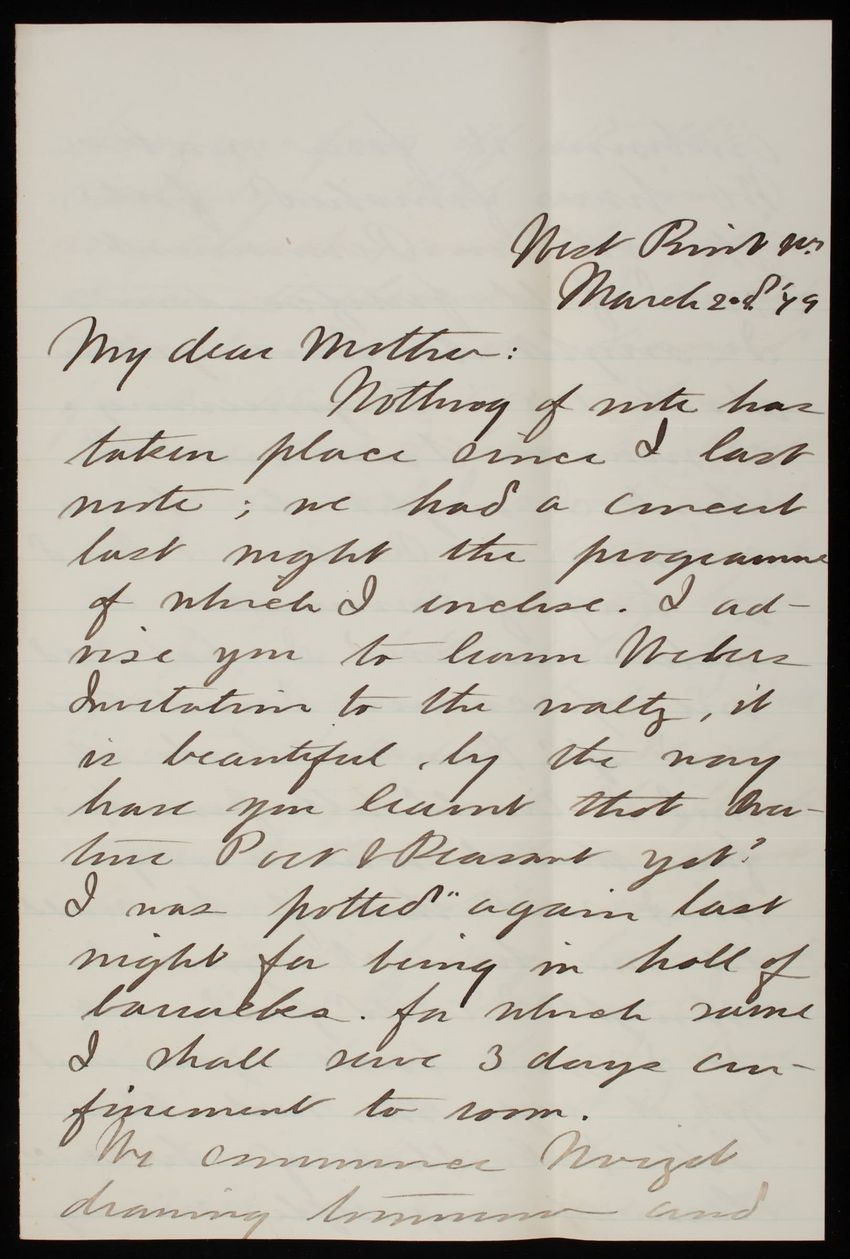 West Point N.Y.
March 2nd '79
My dear Mother:
Nothing of note has
taken place since I last
wrote; we had a concert
last night the programme
of which I inclose. I ad-
vise you to learn Webers
Invitation to the waltz, it
is beautiful, by the way
have you learnt that over-
ture Poet & Peasant yet?
I was potted" again last
night for being in hall of
barracks. for which same
I shall serve 3 days con-
finement to room.
We commence
drawing tomorrow and